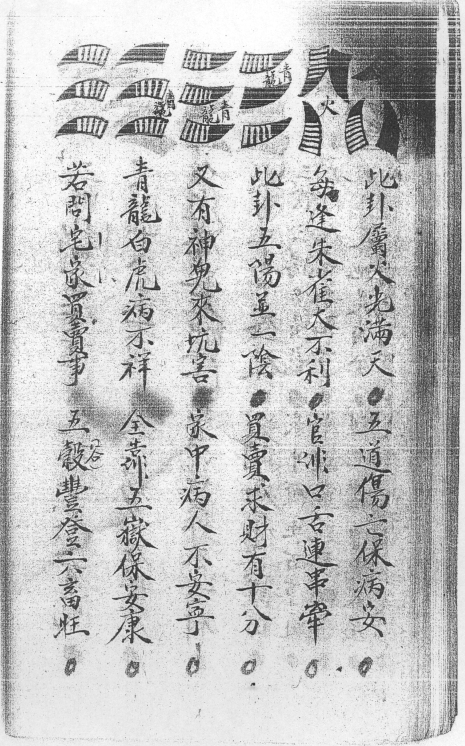 火
青龍
青龍
青龍
此卦屬火光滿天 五道傷亡保病安
每逢朱雀大不利 官非口舌連串牽
此卦五陽並一陰 買賣求財有十分
又有神鬼來坑害 家中病人不安寧
青龍白虎病不祥 全靠五嶽保安康
若問宅家買賣事 五穀豐登六畜旺
谷